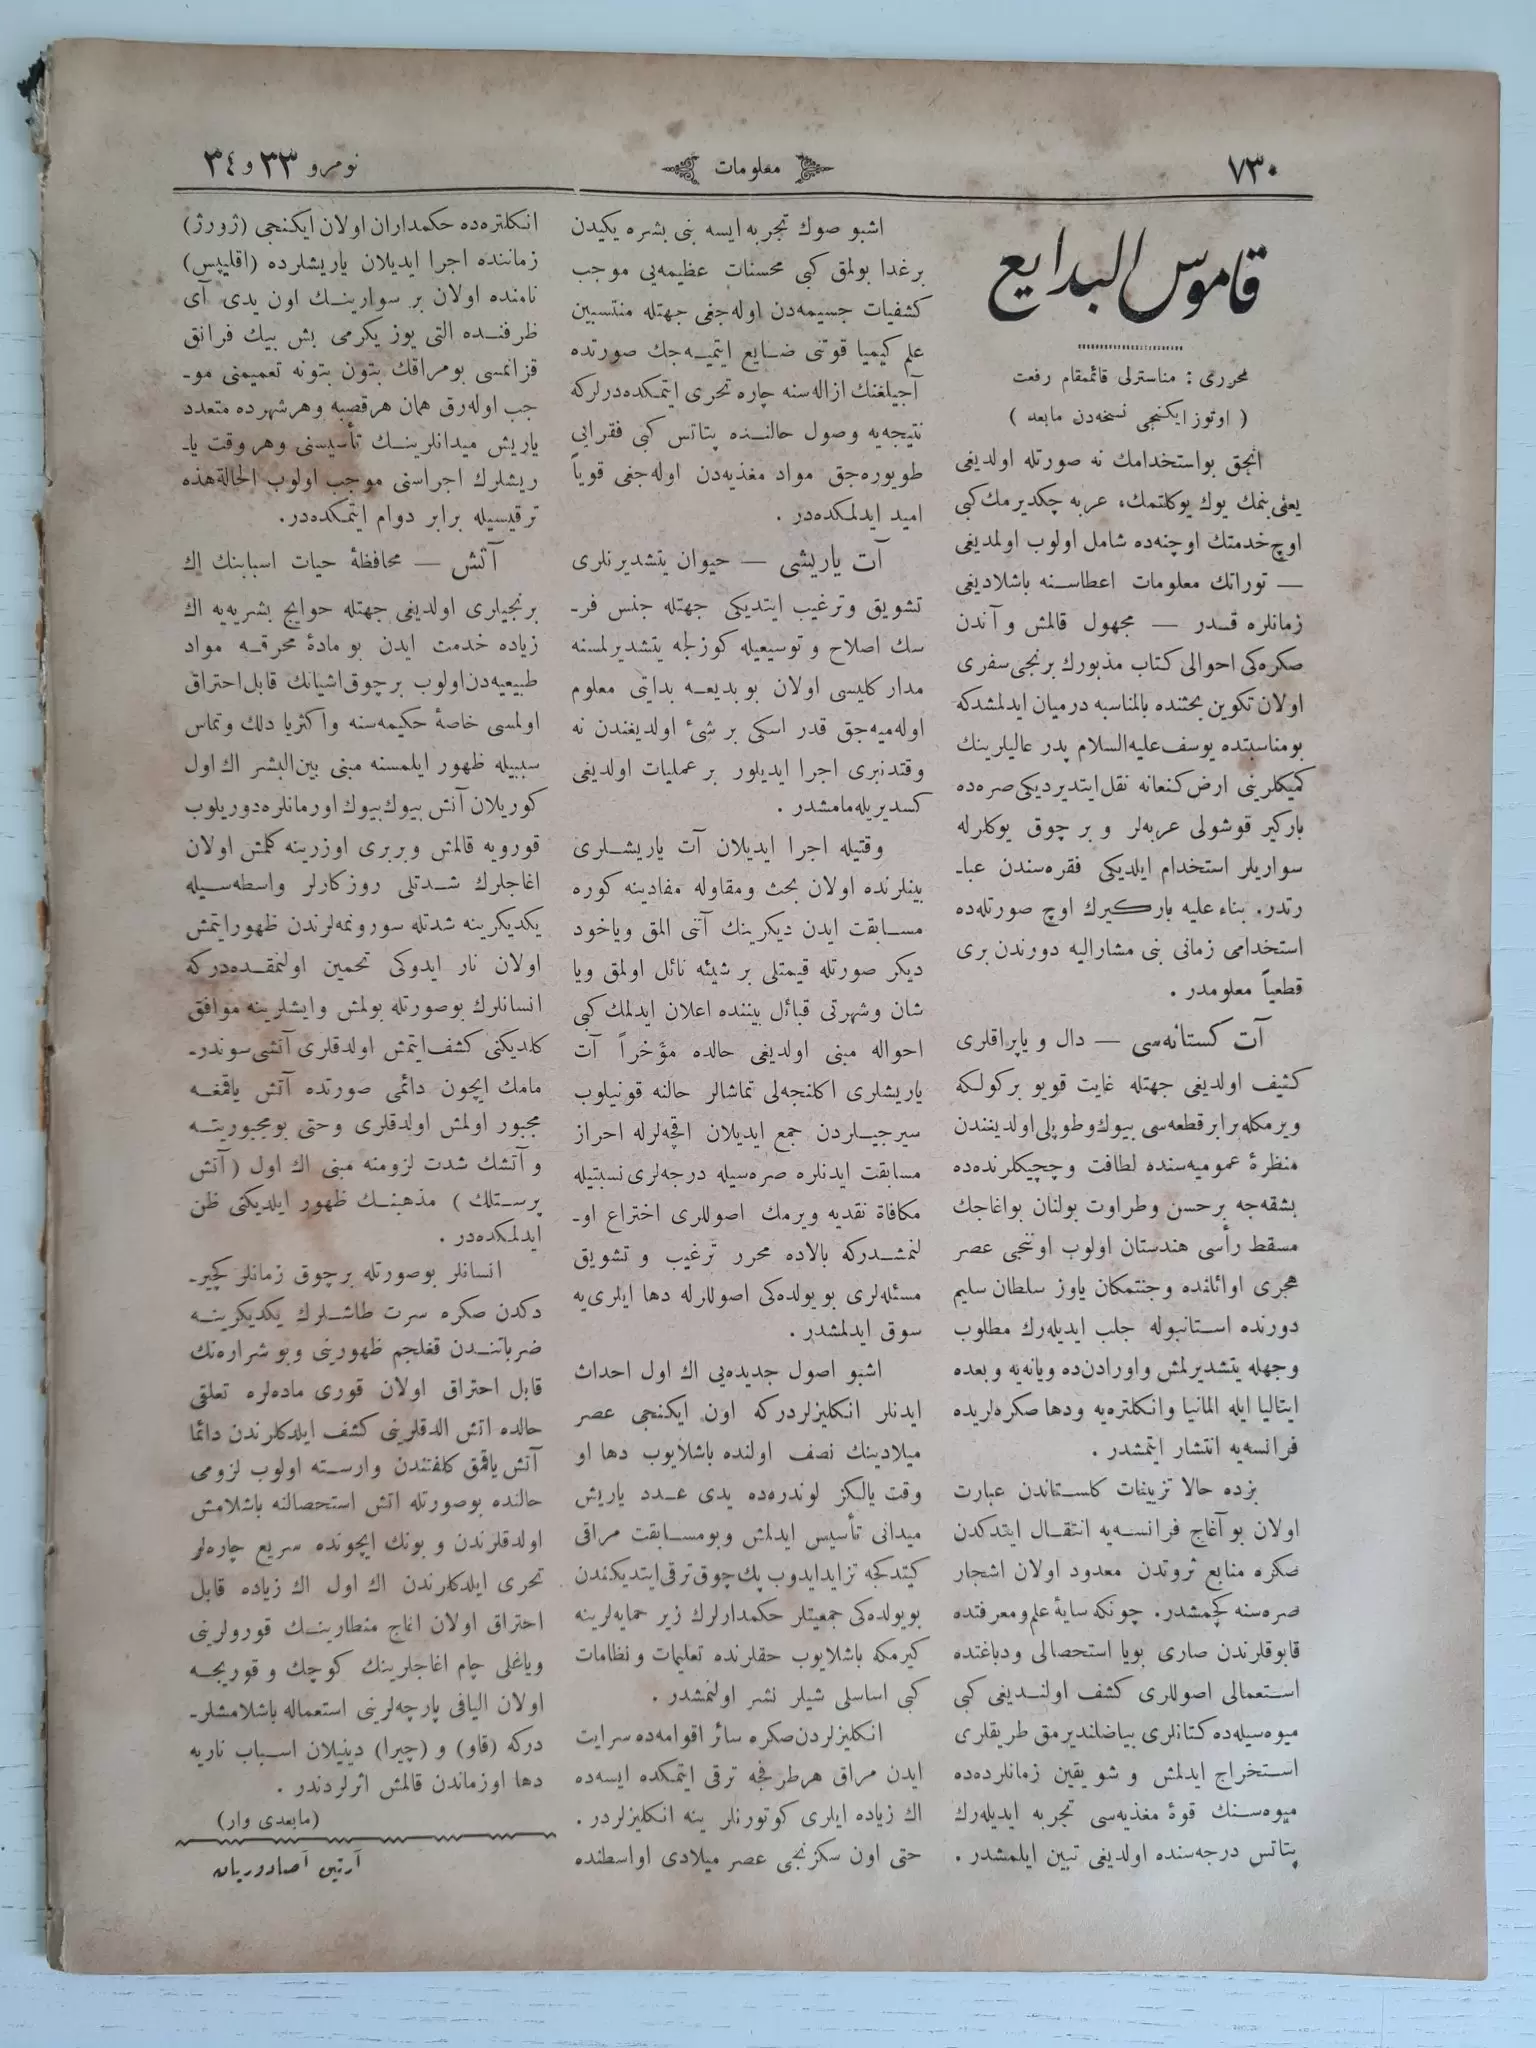 ٧٣٠
معلومات
نومرو ٣٣ و ٣٤
قاموس البدايع
محررى : مناسترلى قائممقام رفعت
( اوتوز ايكنجى نسخه‌دن مابعد )
انجق بواستخدامك نه صورتله اولديغى
يعنى بنمك يوك يوكلتمك، عربه چكديرمك كبى
اوچ خدمتك اوچنه‌ده شامل اولوب اولمديغى
— توراتك معلومات اعطاسـنه باشلاديغى
زمانلره قـدر — مجهول قالمش و آندن
صكره‌كى احوالى كتاب مذبورك برنجى سفرى
اولان تكوين بحثنده بالمناسبه درميان ايدلمشدركه
بومناسبتده يوسف عليه السلام پدر عاليلرينك
كميكلرينى ارض كنعانه نقل ايتديرديكى صره‌ده
باركير قوشولى عربه‌لر و بر چوق يوكلرله
سواريلر استخدام ايلديكى فقره‌سندن عبا-
رتدر. بناء عليه باركيرك اوچ صورتله‌ده
استخدامى زمانى نبى مشاراليه دورندن برى
قطعياً معلومدر .
آت كستانه‌سى — دال و ياپراقلرى
كثيف اولديغى جهتله غايت قويو بركولكه
ويرمكله برابر قطعه‌سى بيوك وطوپلى اولديغندن
منظرۀ عموميه‌سنده لطافت وچچكلرنده‌ده
بشقه‌جه برحسن وطراوت بولنان بواغاجك
مسقط رأسى هندستان اولوب اوننجى عصر
هجرى اوائلنده وجنتمكان ياوز سلطان سليم
دورنده اسـتانبوله جلب ايديله‌رك مطلوب
وجهله يتشديرلمش واورادن‌ده ويانه‌يه وبعده
ايتاليا ايله المانيا وانكلتره‌يه ودها صكره‌لريده
فرانسه‌يه انتشار ايتمشدر .
بزده حالا تزيينات كلسـتاندن عبارت
اولان بو آغاج فرانسـه‌يه انتقـال ايتدكدن
صكره منابع ثروتدن معدود اولان اشجار
صره‌سنه كچمشدر. چونكه سايۀ علم ومعرفتده
قابوقلرندن صارى بويا استحصالى ودباغتده
اسـتعمالى اصوللرى كشف اولنـديغى كبى
ميوه‌سيله‌ده كتانلرى بياضلنديرمق طريقلرى
اسـتخراج ايدلمش و شو يقين زمانلرده‌ده
ميوه‌سـنك قوۀ مغذيه‌سى تجربه ايديله‌رك
پتاتس درجه‌سنده اولديغى تبين ايلمشدر .
اشبو صوك تجربه ايسه بنى بشره يكيدن
برغدا بولمق كبى محسنات عظيمه‌يى موجب
كشفيات جسيمه‌دن اوله‌جغى جهتله منتسبين
علم كيميا قوتنى ضـايع ايتميـه‌جك صورتده
آجيلغنك ازاله‌سنه چاره تحرى ايتمكده‌درلركه
نتيجه‌يه وصول حالنـده پتاتس كبى فقرايى
طويوره‌جق مواد مغذيه‌دن اوله‌جغى قوياً
اميد ايدلمكده‌در .
آت ياريشى — حيوان يتشديرنلرى
تشويق وترغيب ايتديكى جهتله جنس فر-
سك اصلاح و توسيعيله كوزلجه يتشديرلمسنه
مدار كليسى اولان بو بديعـه بدايتى معلوم
اوله‌ميه‌جق قدر اسكى بر شئ اولديغندن نه
وقتدنبرى اجرا ايديلور بر عمليات اولديغى
كسديريله‌مامشدر .
وقتيله اجرا ايديلان آت ياريشـلرى
بينلرنده اولان بحث ومقاوله مفادينه كوره
مسـابقت ايدن ديكرينك آتنى المق وياخود
ديكر صورتله قيمتلى بر شيئه نائل اولمق ويا
شان وشهرتى قبائل بيننده اعلان ايدلمك كبى
احواله مبنى اولديغى حالده مؤخراً آت
ياريشلرى اكلنجه‌لى تماشالر حالنه قونيلوب
سيرجيـلردن جمع ايديلان اقچه‌لرله احراز
مسابقت ايدنلره صره‌سيله درجه‌لرى نسبتيله
مكافاة نقديه ويرمك اصوللرى اختراع او-
لنمشـدركه بالاده محرر ترغيب و تشويق
مسئله‌لرى بو يولده‌كى اصوللرله دها ايلرى‌يه
سوق ايدلمشدر .
اشبو اصول جديده‌يى اك اول احداث
ايدنلر انكليزلردركه اون ايكنجى عصر
ميلادينك نصف اولنده باشلايوب دها او
وقت يالكز لوندره‌ده يدى عـدد ياريش
ميدانى تأسيس ايدلمش وبومسـابقت مراقى
كيتدكجه تزايدايدوب پك چوق ترقى ايتديكندن
بويولده‌كى جمعيتلر حكمدارلرك زير حمايه‌لرينه
كيرمكه باشلايوب حقلرنده تعليمات ونظامات
كبى اساسلى شيلر نشر اولنمشدر .
انكليزلردن صكره سائر اقوامه‌ده سرايت
ايدن مراق هرطرفجه ترقى ايتمكده ايسه‌ده
اك زياده ايلرى كوتورنلر ينه انكليزلردر .
حتى اون سكزنجى عصر ميلادى اواسطنده
انكلتره‌ده حكمداران اولان ايكنجى (ژورژ)
زماننده اجرا ايديلان ياريشلرده (اقليپس)
نامنده اولان بر سوارينـك اون يدى آى
ظرفنـده التى يوز يكرمى بش بيك فرانق
قزانمسى بومراقك بتون بتونه تعميمنى مو-
جب اوله‌رق همان هرقصبه وهرشهرده متعدد
ياريش ميدانلرينـك تأسيسنى وهر وقت يا-
ريشلرك اجراسنى موجب اولوب الحالة هذه
ترقيسيله برابر دوام ايتمكده‌در.
آتش — محافظۀ حيات اسبابنك اك
برنجيلرى اولديغى جهتله حوايج بشريه‌يه اك
زياده خدمت ايدن بو مادۀ محرقـه مواد
طبيعيه‌دن اولوب برچوق اشيانك قابل احتراق
اولمسى خاصۀ حكيمه‌سنه واكثريا دلك وتماس
سببيله ظهور ايلمسنه مبنى بين البشر اك اول
كوريلان آتش بيوك بيوك اورمانلرده دوريلوب
قورويه قالمش وبربرى اوزرينه كلمش اولان
اغاجلرك شـدتلى روزكارلر واسطه‌سـيله
يكديكرينه شدتله سورونمه‌لرندن ظهورايتمش
اولان نار ايدوكى تخمين اولنمقـده‌دركه
انسانلرك بوصورتله بولمش وايشلرينه موافق
كلديكنى كشف ايتمش اولدقلرى آتشى سوندر-
مامك ايچون دائمى صورتده آتش ياقمغـه
مجبور اولمش اولدقلرى وحتى بومجبوريتـه
و آتشك شدت لزومنه مبنى اك اول ( آتش
پرسـتلك ) مذهبنـك ظهور ايلديكنى ظن
ايدلمكده‌در .
انسانلر بوصورتله برچوق زمانلر كچير-
دكدن صكره سرت طاشـلرك يكديكرينـه
ضرباتنـدن قغلجم ظهورينى وبو شراره‌نك
قابل احتراق اولان قورى ماده‌لره تعلقى
حالده اتش الدقلرينى كشف ايلدكلرندن دائما
آتش ياقمق كلفتندن وارسـته اولوب لزومى
حالنده بوصورتله اتش استحصالنه باشلامش
اولدقلرندن و بونك ايچونده سريع چاره‌لر
تحرى ايلدكلرندن اك اول اك زياده قابل
احتراق اولان اغاج منطارينـك قورولرينى
وياغلى چام اغاجلرينك كوچك و قوريجـه
اولان اليافى پارچه‌لرينى استعماله باشلامشلر-
دركه (قاو) و (چيرا) دينيلان اسـباب ناريه
دها اوزماندن قالمش اثرلردندر .
(مابعدى وار)
آرتين آصادوريان